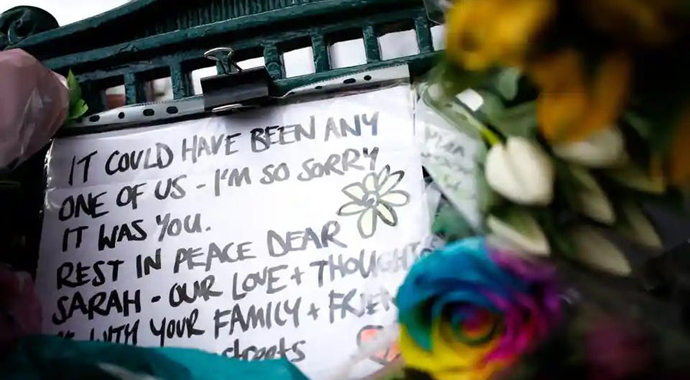 IT COULD HAVE BEEN ANY
ONE OF US - I'M SO SORRY
IT WAS YOU.
REST IN PEACE DEAR
SARAH - OUR LOVE + THOUGHTS
WITH YOUR FAMILY +
streets